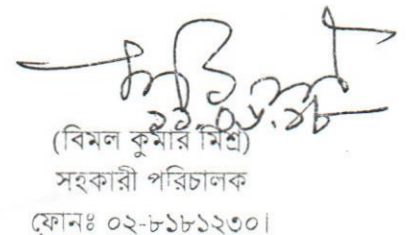 (বিমল কুমার মিশ্র)
সহকারী পরিচালক
ফোনঃ ০২-৮১৮১২৩০।